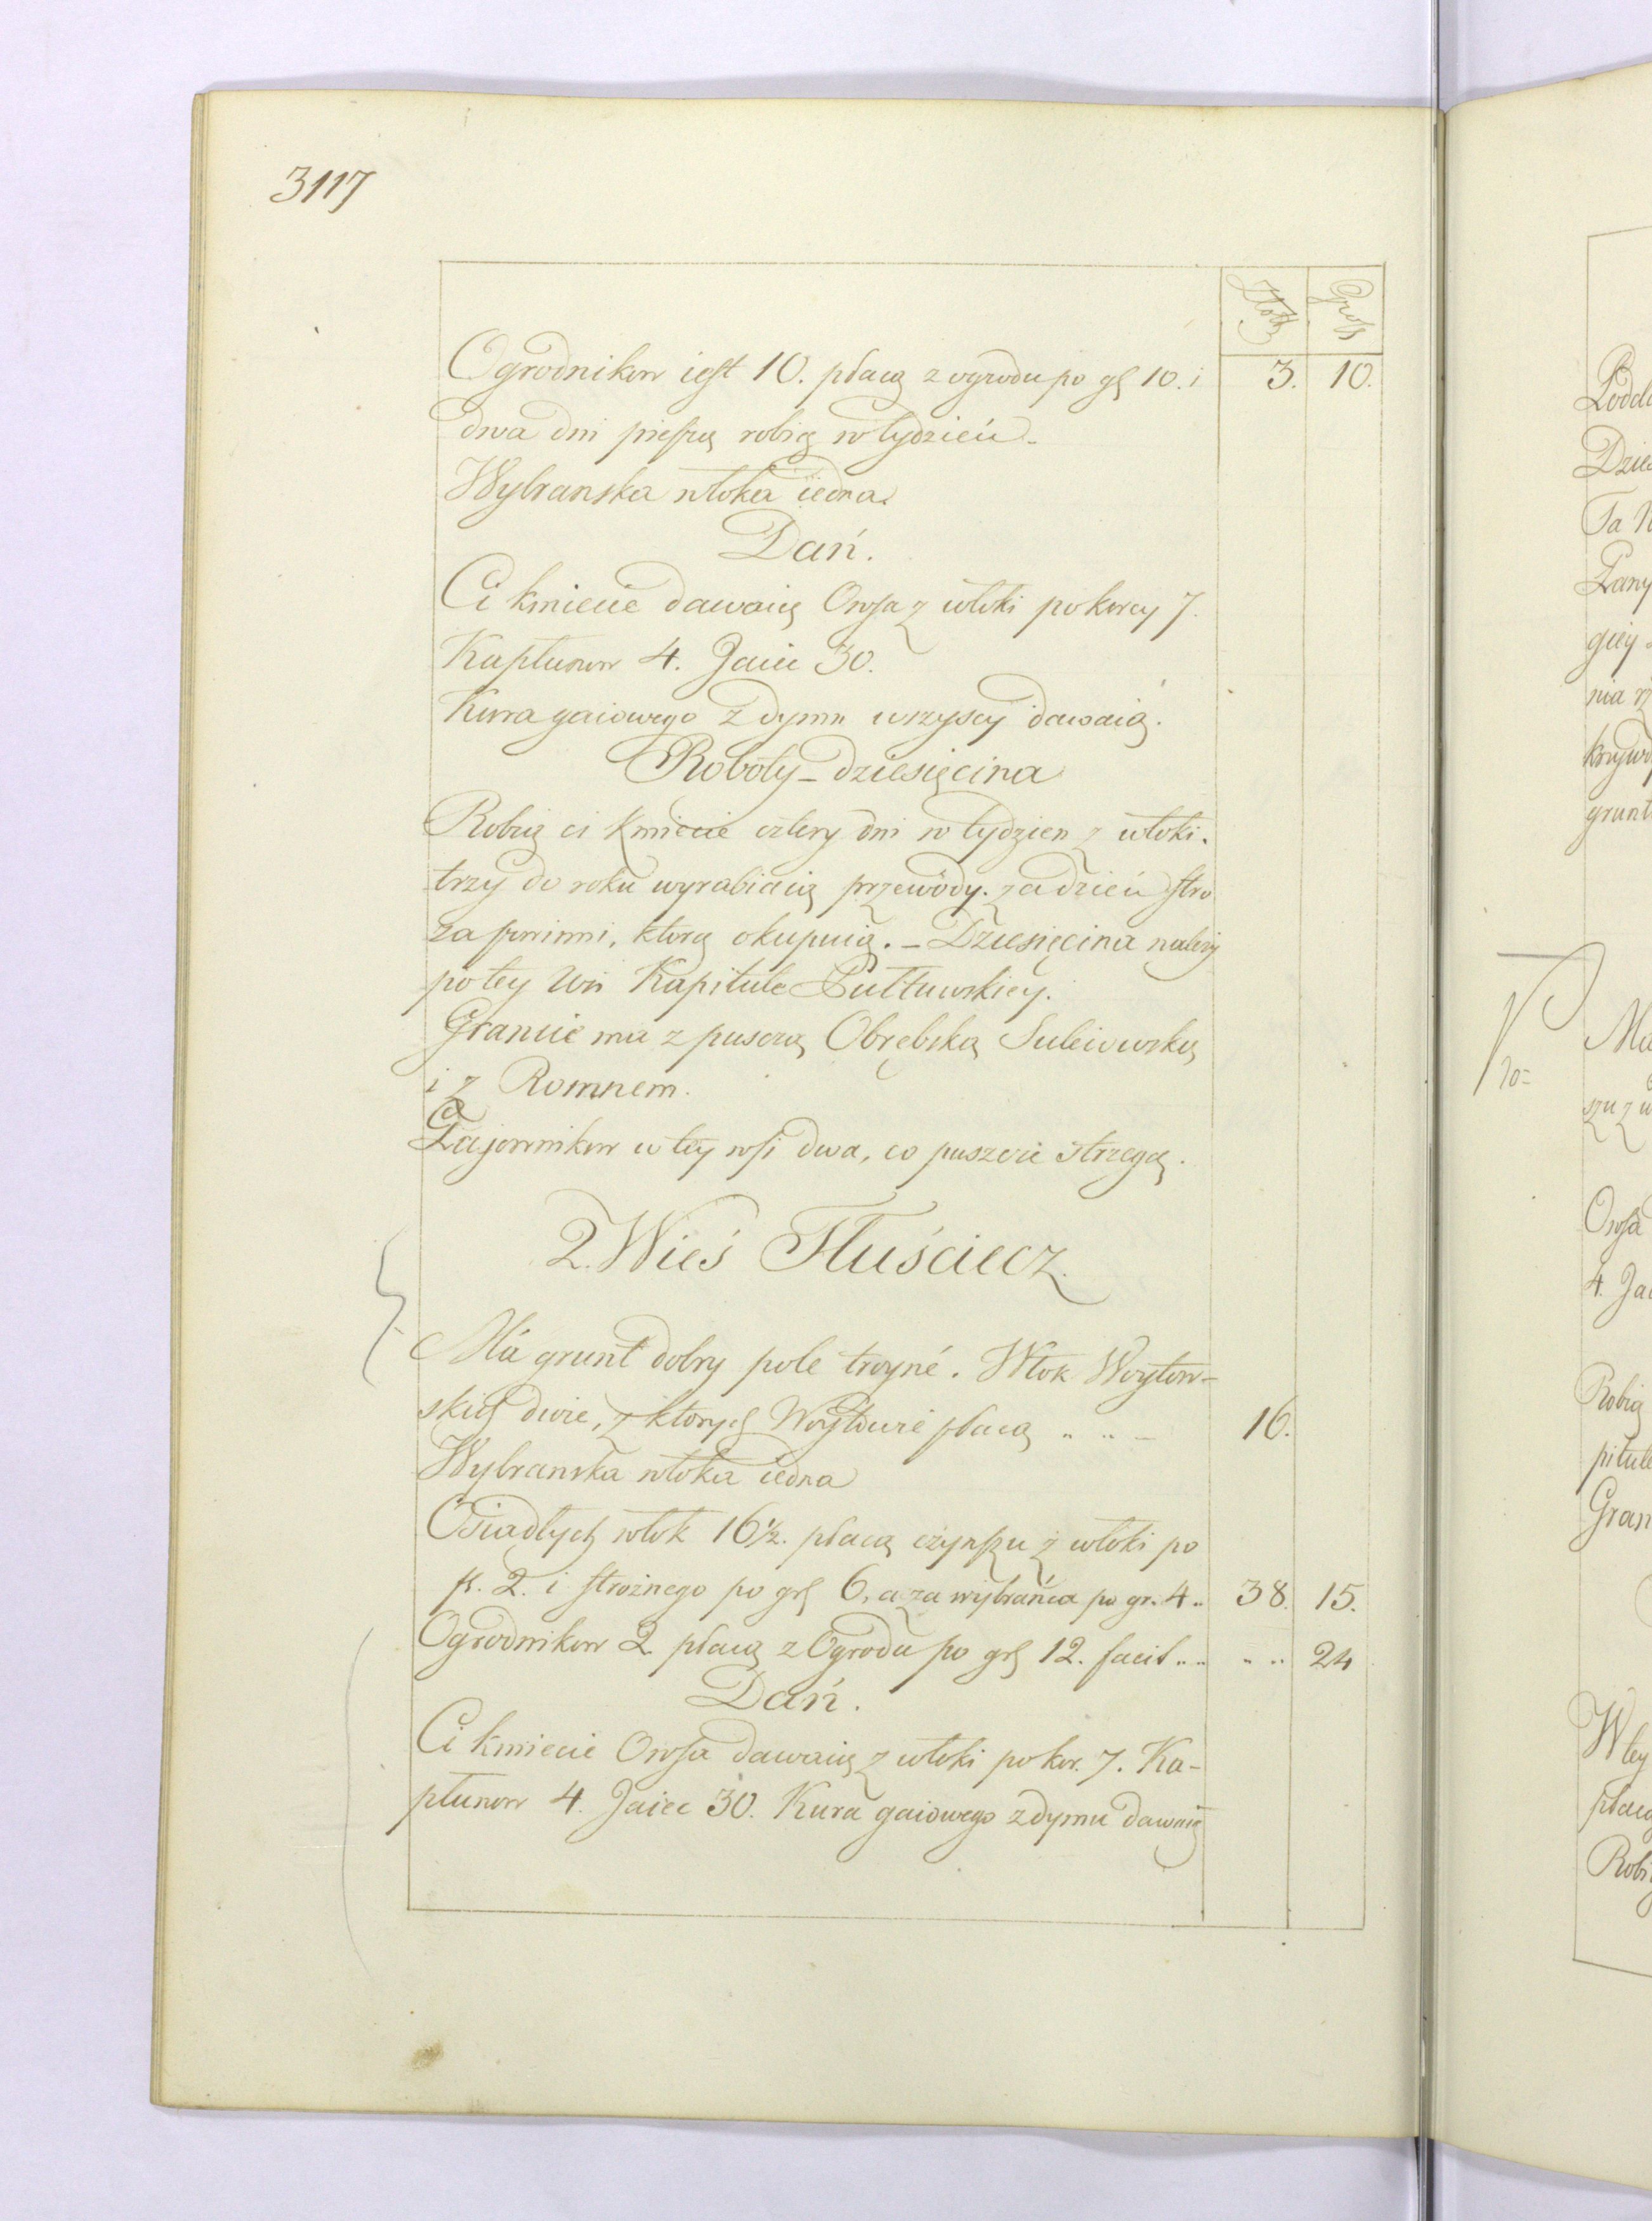 3117
Złote Grosz
Ogrodnikow iest 10. płacą z ogrodu po gſ 10. i 3. 10.
dwa dni pieſzą robią w tydzień.
Wybranska włoka iedna.
Dań.
Ci kmiecie dawaią Owſa z włoki po korcy 7.
Kapłunow 4. Jaiec 30.
Kura gaiowego z dymu wszyscy dawaią.
Roboty - dziesięcina
Robią ci kmiecie cztery dni w tydzien z włoki.
trzy do roku wyrabiaią przewody. za dzień ſtro
za powinni, ktorą okupuią. - Dziesięcina należy
po tey Wsi Kapitule Pułtuwskiey.
Granice ma z puszczą Obrębską Suleiowską
i z Romnem.
Gajownikow w tey wſi dwa, co puszcze strzegą.
2. Wieś Tłuściecz.
Ma grunt dobry pole troyné. Włok Woytow-
skich dwie, z ktorych Woytowie płacą „ „ - 16.
Wybranska włoka iedna
Osiadłych włok 16½. płacą czynſzu z włoki po
fl. 2. i ſtrożnego po grſ 6, a za wybrańca po gr. 4 „ 38. 15.
Ogrodnikow 2 płacą z Ogrodu po grſ 12. facit „ „ „ „ 24
Dań.
Ci kmiecie Owſa dawaią z włoki po kor. 7. Ka-
płunow 4. Jaiec 30. Kura gaiowego z dymu dawaią